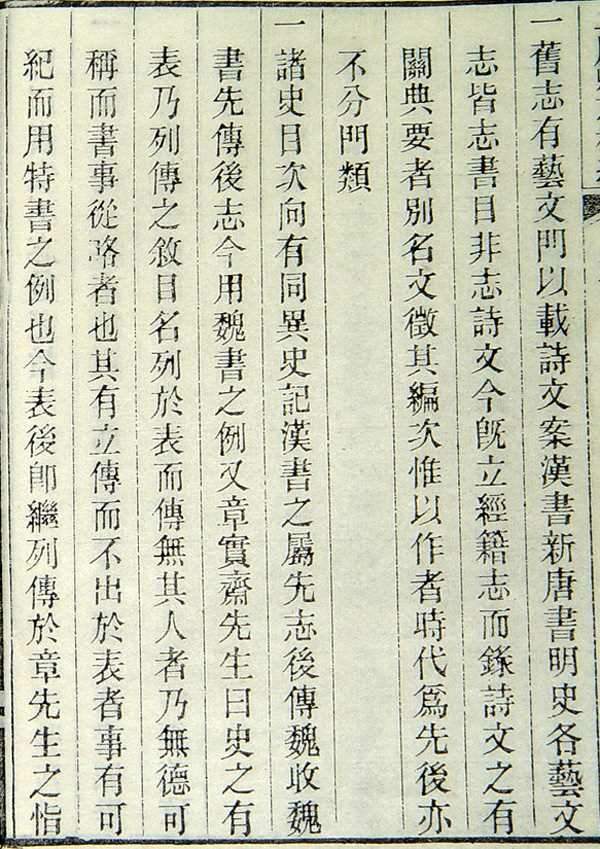 一舊志有藝文門以載詩文案漢書新唐書明史各藝文
志皆志書目非志詩文今旣立經籍志而錄詩文之有
關典要者別名文徵其編次惟以作者時代爲先後亦
不分門類
一諸史目次向有同異史記漢書之屬先志後傳魏收魏
書先傳後志今用魏書之例又章實齋先生曰史之有
表乃列傳之敘目名列於表而傳無其人者乃無德可
稱而書事從略者也其有立傳而不出於表者事有可
紀而用特書之例也今表後卽繼列傳於章先生之恉